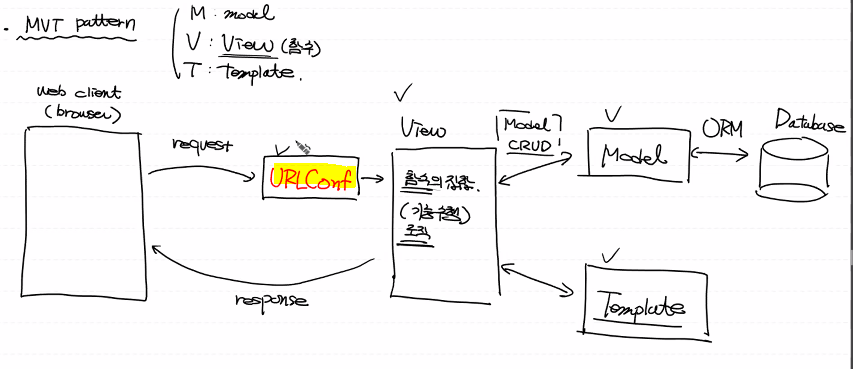 · MVT pattern
M : model
V : View (함수)
T : Template.
web client
(browser)
request
URLConf
response
View
함수의 집합.
(기능수행)
로직
Model
CRUD
Model
ORM
Database
Template